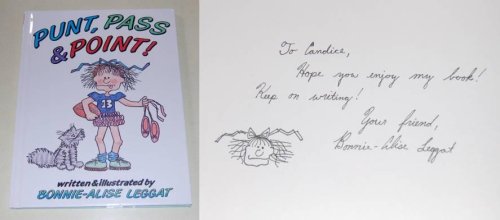 PUNT, PASS
& POINT!
13
written & illustrated by
BONNIE-ALISE LEGGAT
To Candice,
Hope you enjoy my book!
Keep on writing!
Your friend,
Bonnie-Alise Leggat